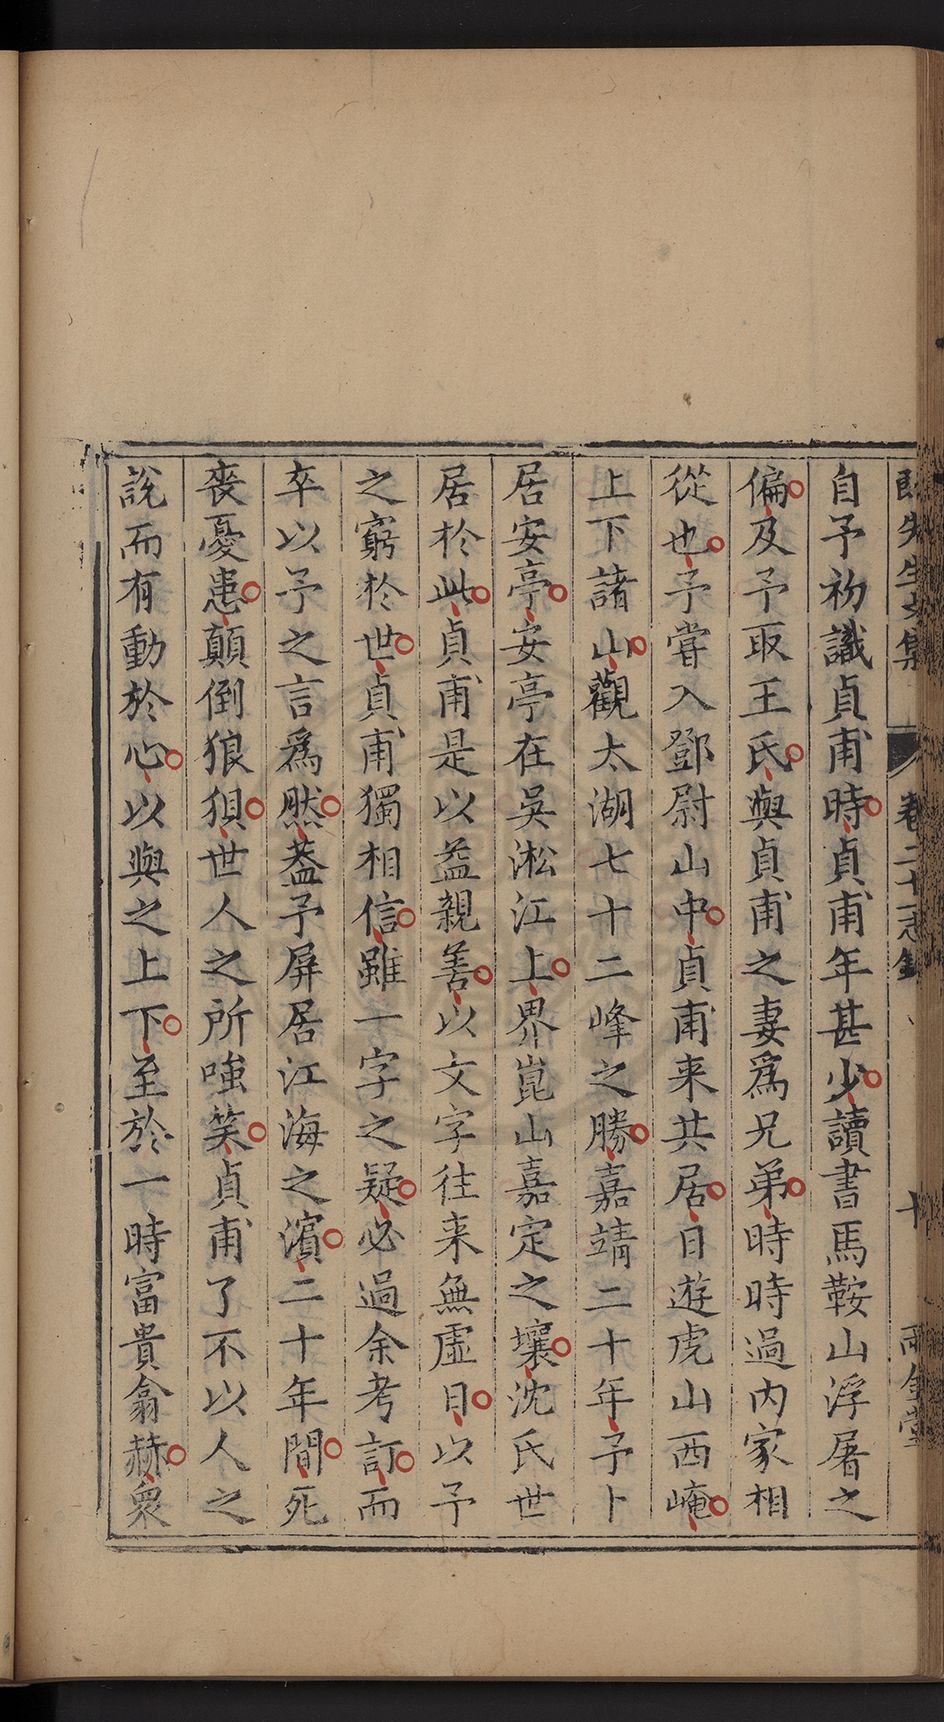 先生文集 卷二十一志銘 十 雨金堂
自予初識貞甫時貞甫年甚少讀書馬鞍山浮屠之
偏及予取王氏與貞甫之妻爲兄弟時時過内家相
從也予嘗入鄧尉山中貞甫来共居日遊虎山西崦
上下諸山觀太湖七十二峰之勝嘉靖二十年予卜
居安亭安亭在吳淞江上界崑山嘉定之壤沈氏世
居於此貞甫是以益親善以文字往来無虛日以予
之窮於世貞甫獨相信雖一字之疑必過余考訂而
卒以予之言爲然葢予屏居江海之濵二十年間死
喪憂患顛倒狼狽世人之所嗤笑貞甫了不以人之
說而有動於心以與之上下至於一時富貴翕赫衆